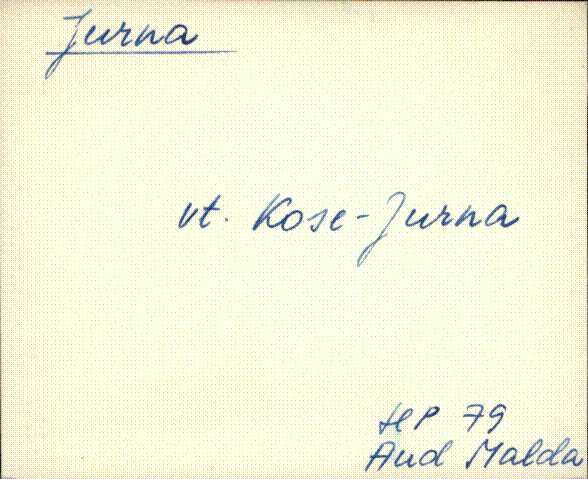 Jurna
vt. Kose-Jurna
HP 79
Aud Malda